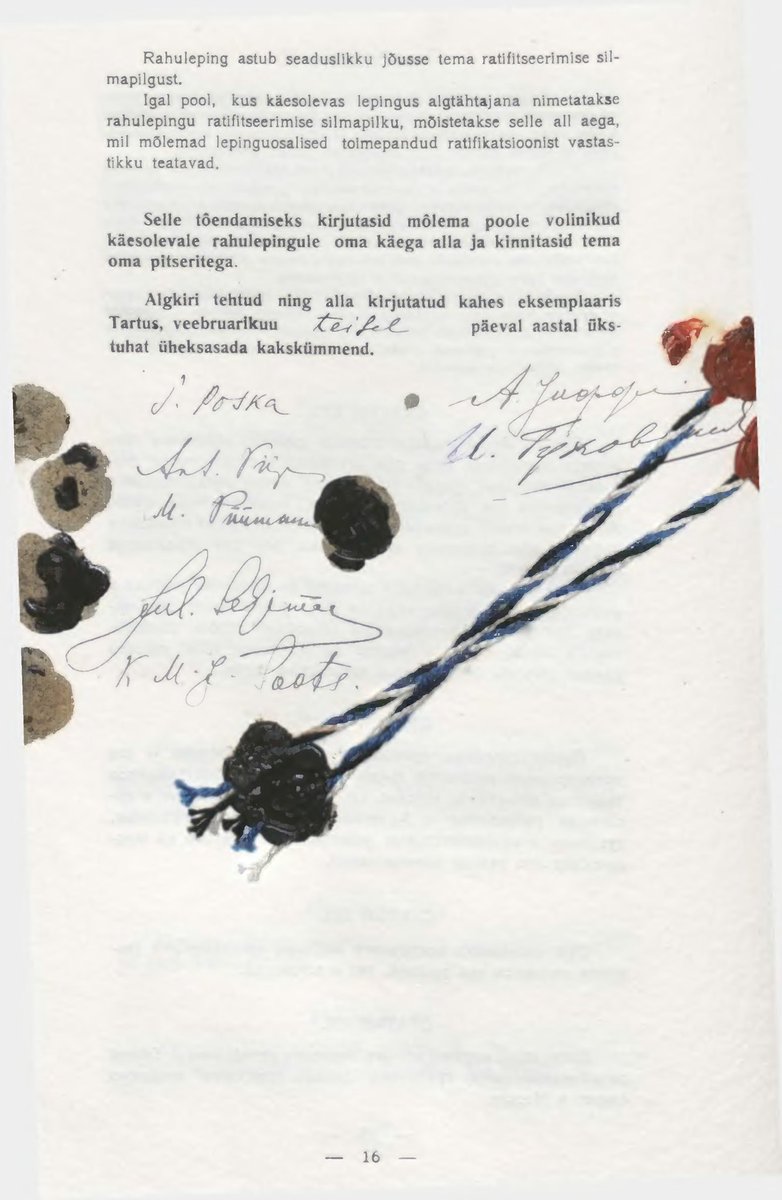 Rahuleping astub seaduslikku jõusse tema ratifitseerimise sil-
mapilgust.
Igal pool, kus käesolevas lepingus algtähtajana nimetatakse
rahulepingu ratifitseerimise silmapilku, mõistetakse selle all aega,
mil mõlemad lepinguosalised toimepandud ratifikatsioonist vastas-
tikku teatavad.
Selle tôendamiseks kirjutasid môlema poole volinikud
käesolevale rahulepingule oma käega alla ja kinnitasid tema
oma pitseritega.
Algkiri tehtud ning alla kirjutatud kahes eksemplaaris
Tartus, veebruarikuu teisel päeval aastal üks-
tuhat üheksasada kakskümmend.
J. Poska
А. Иоффе
Ant. Piip
И. Гуковский
M. Püümann
Jul. Seljamaa
K M. J. Soots.
— 16 —